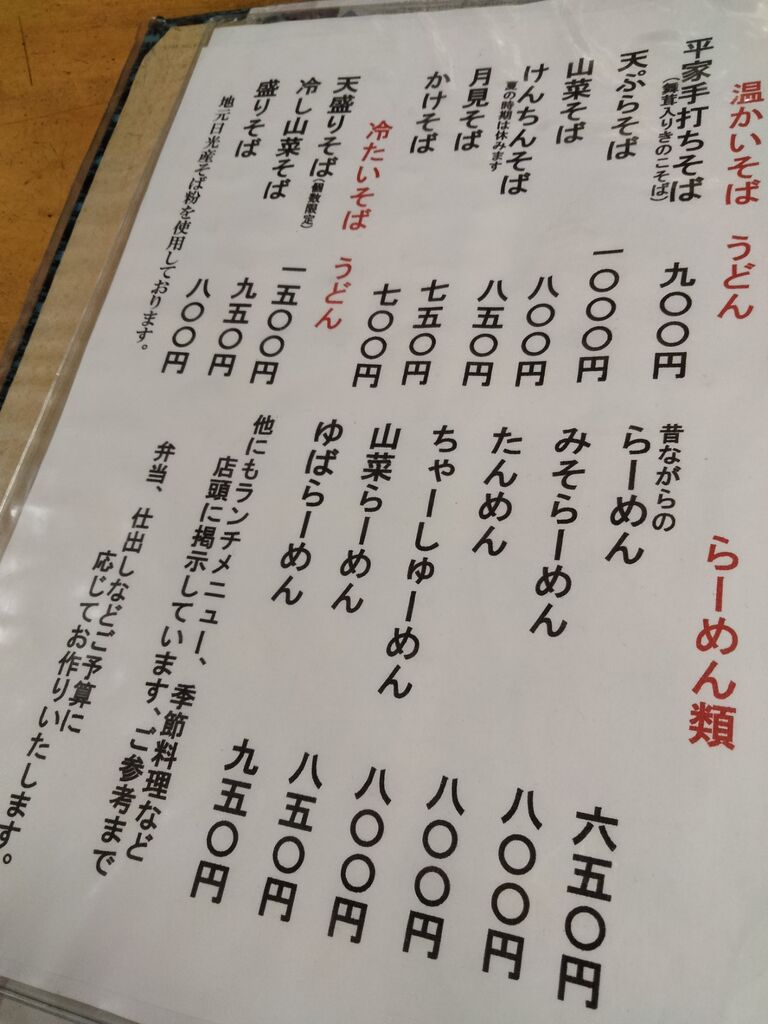 温かいそば　うどん
平家手打ちそば　九〇〇円
（舞茸入りきのこそば）
天ぷらそば　一〇〇〇円
山菜そば　八〇〇円
けんちんそば　八五〇円
夏の時期は休みます
月見そば　七五〇円
かけそば　七〇〇円
冷たいそば　うどん
天盛りそば（個数限定）　一五〇〇円
冷し山菜そば　九五〇円
盛りそば　八〇〇円
地元日光産そば粉を使用しております。
らーめん類
昔ながらの
らーめん　六五〇円
みそらーめん　八〇〇円
たんめん　八〇〇円
ちゃーしゅーめん　八〇〇円
山菜らーめん　八五〇円
ゆばらーめん　九五〇円
他にもランチメニュー、季節料理など
店頭に掲示しています、ご参考まで
弁当、仕出しなどご予算に
応じてお作りいたします。